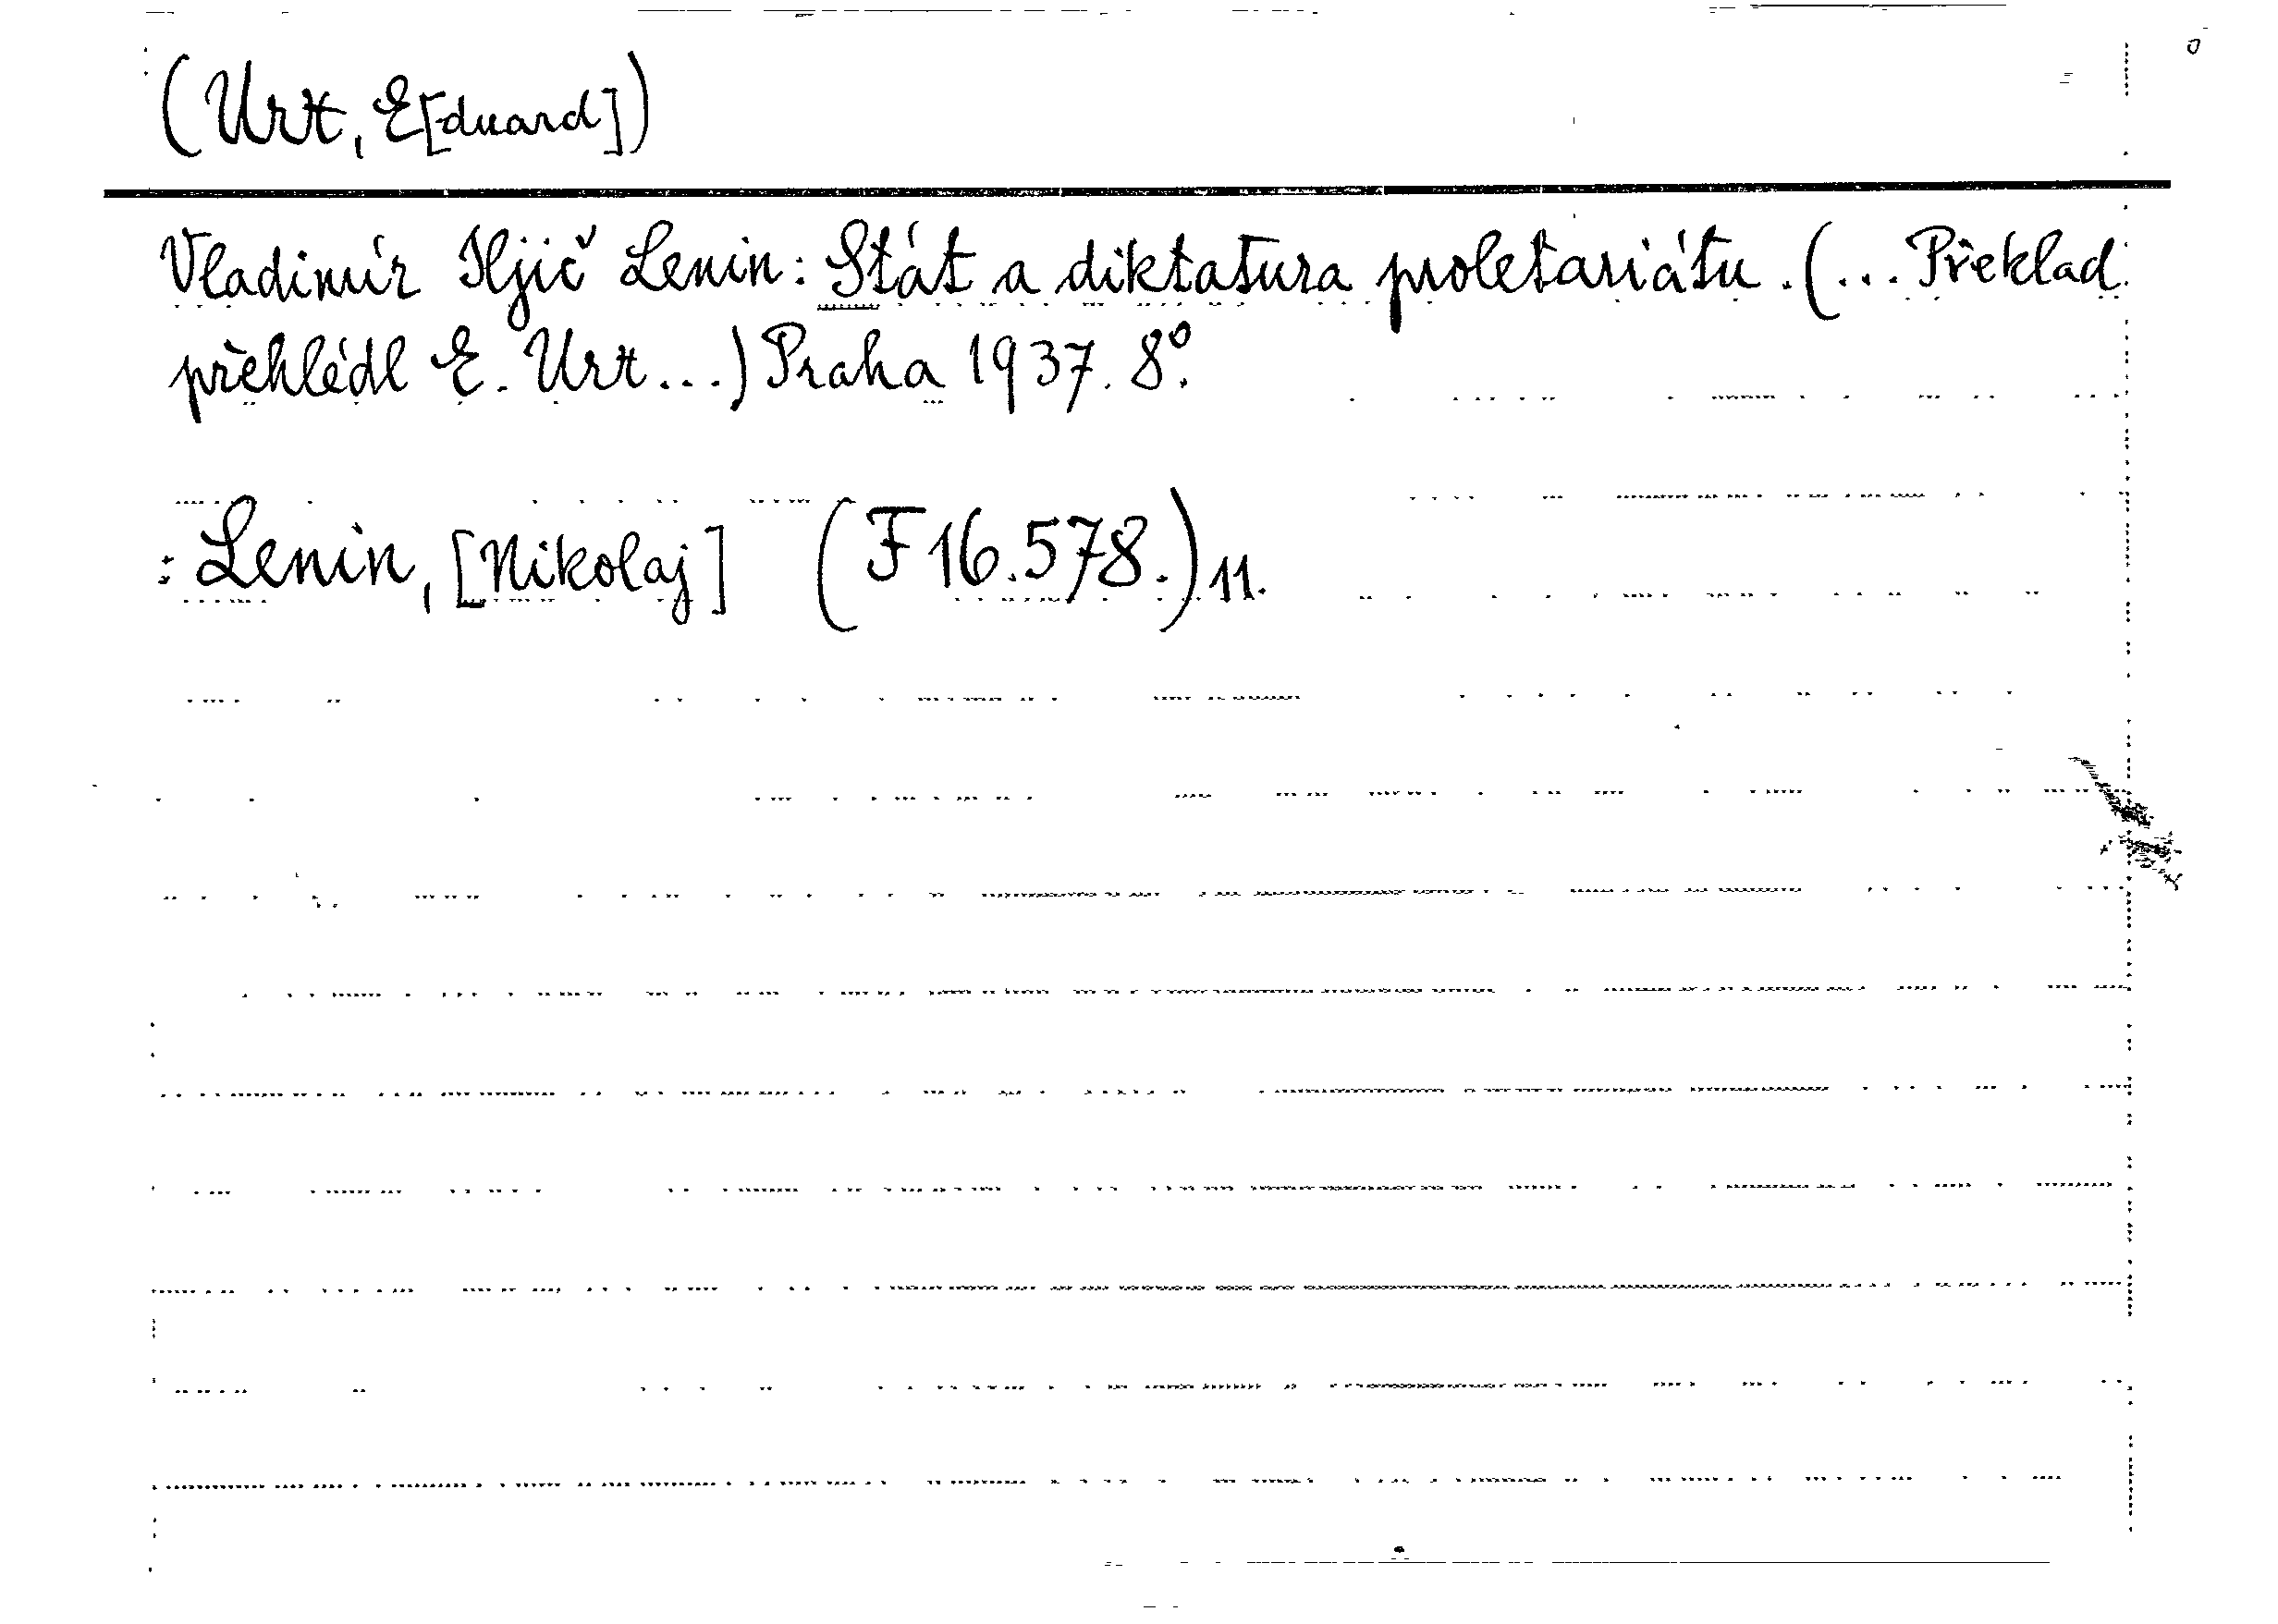 (Urx, E[duard])
Vladimír Iljič Lenin: Stát a diktatura proletariátu. (... Překlad
přehlédl E. Urx...) Praha 1937. 8°.
: Lenin, [Nikolaj] (F 16.578.) 11.